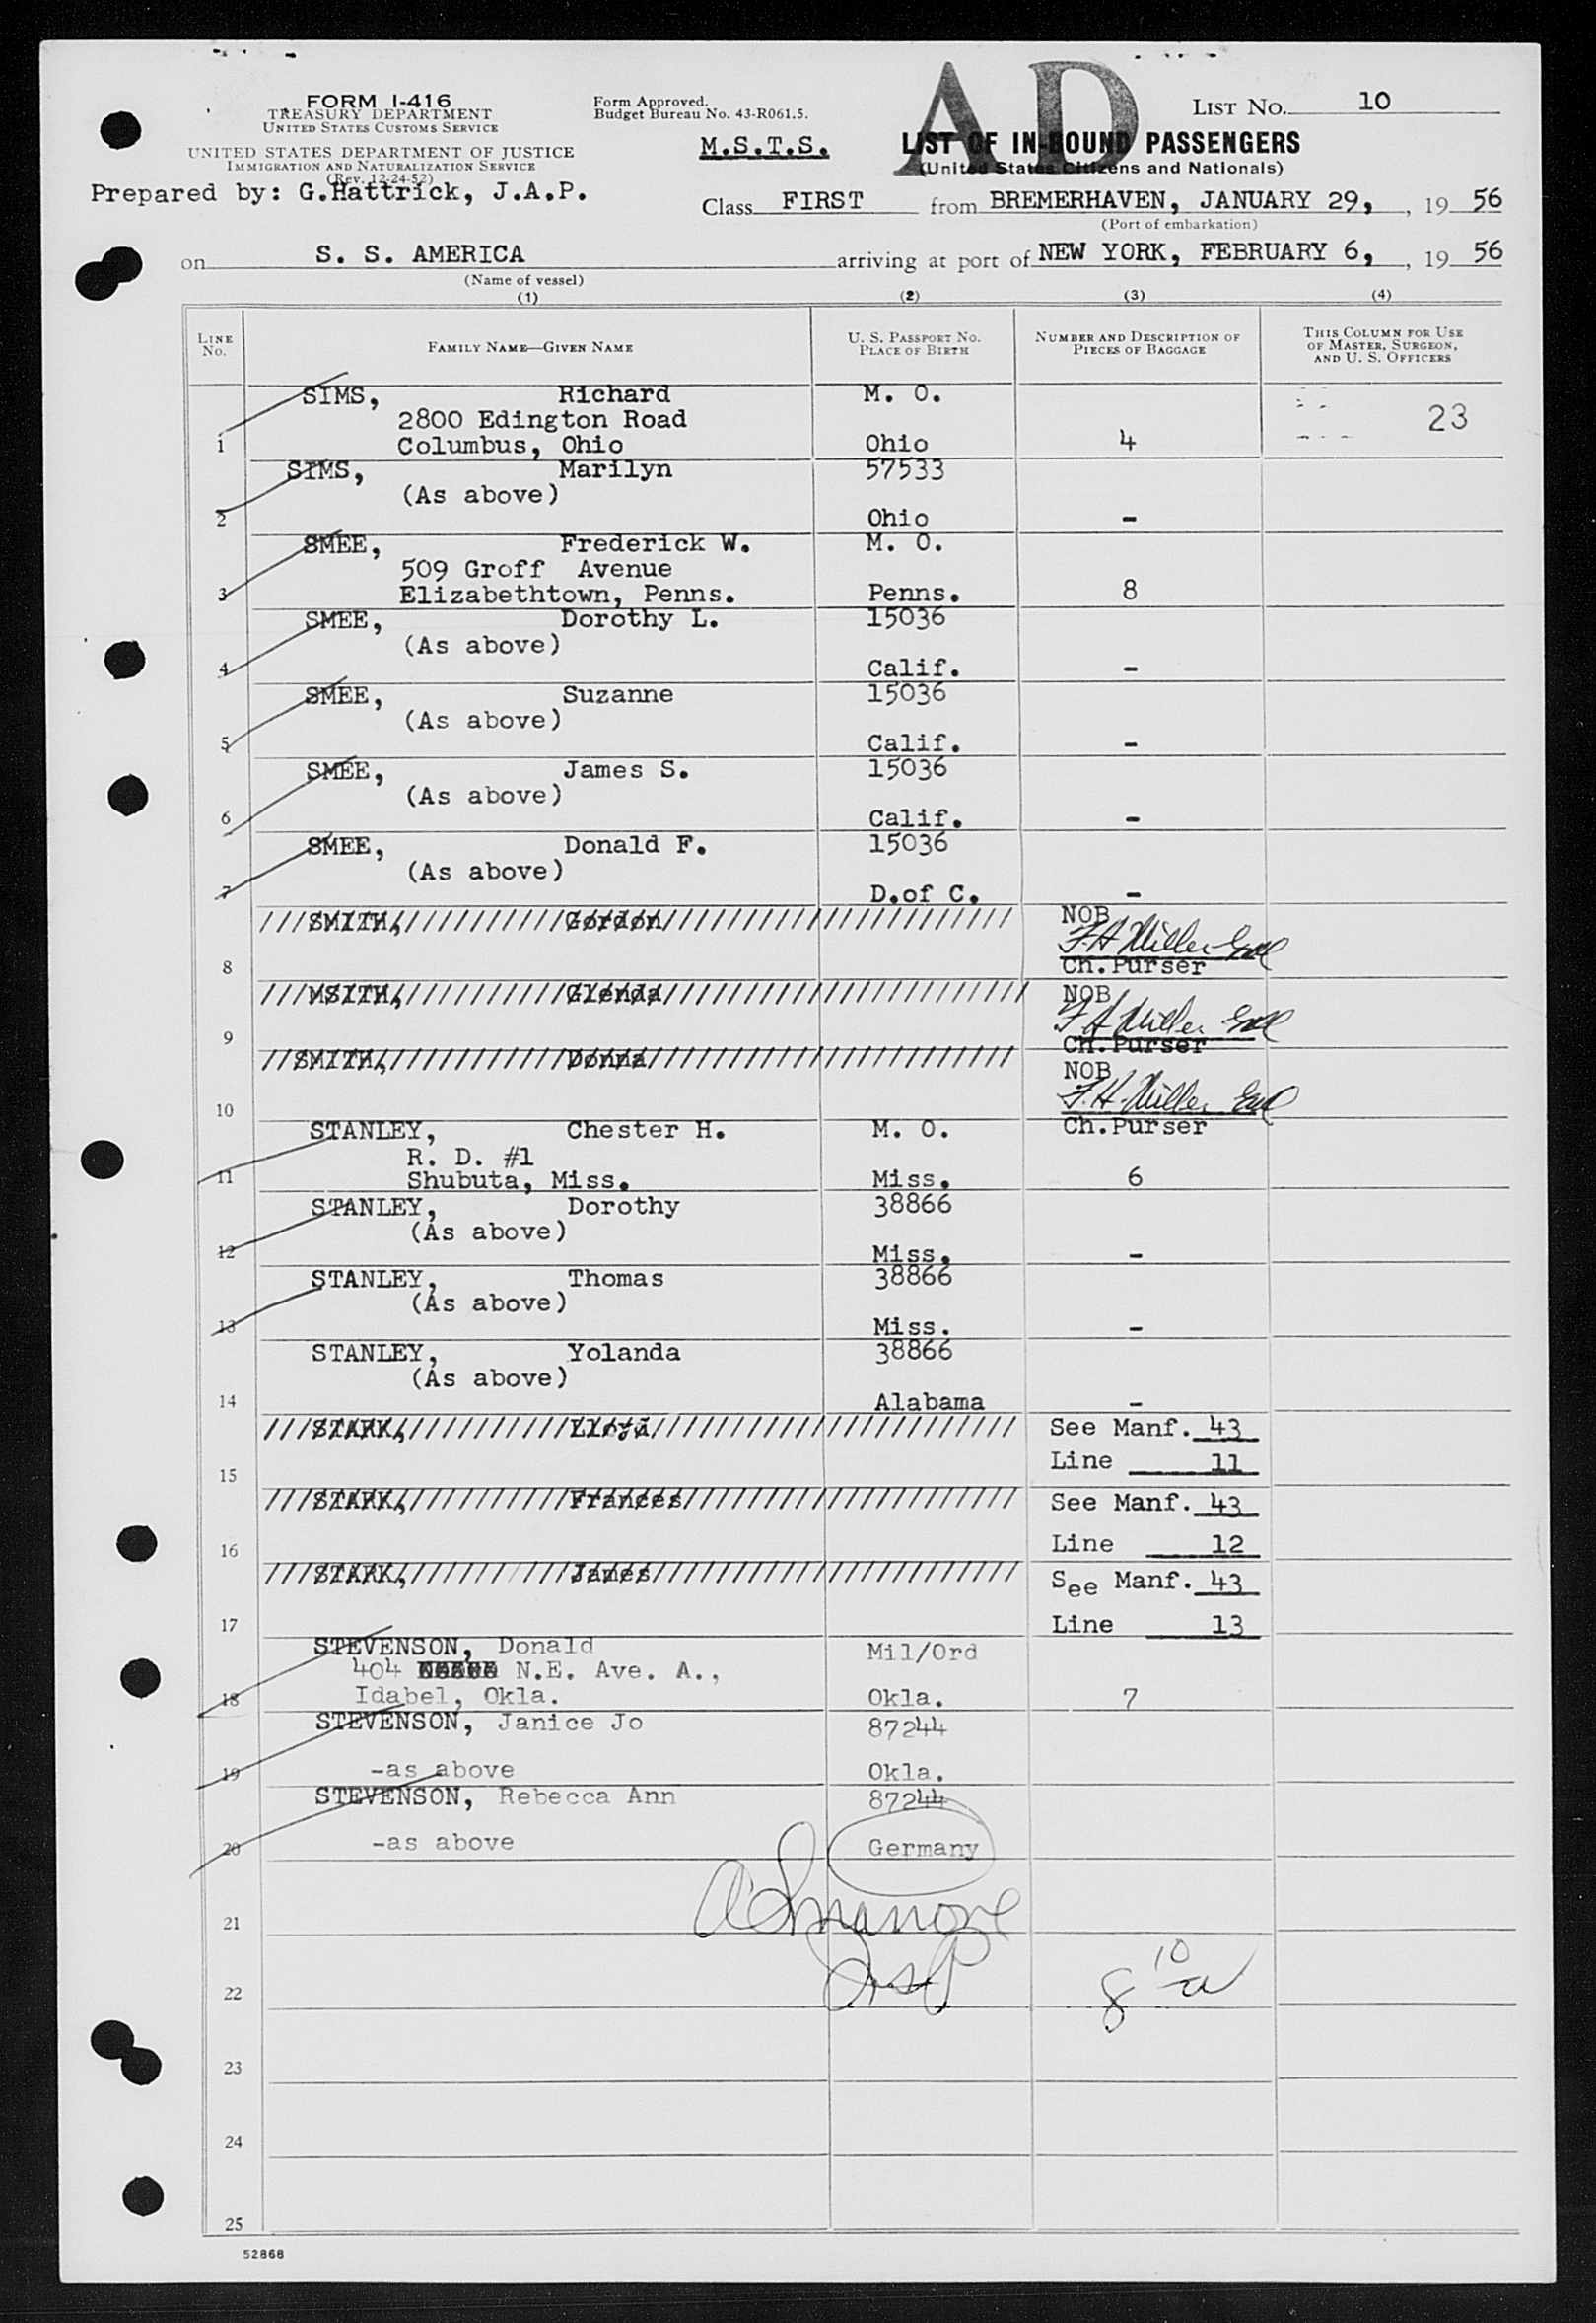 AD
FORM I-416
TREASURY DEPARTMENT
UNITED STATES CUSTOMS SERVICE
UNITED STATES DEPARTMENT OF JUSTICE
IMMIGRATION AND NATURALIZATION SERVICE
(Rev. 12-24-52)
Prepared by: G.Hattrick, J.A.P.
Form Approved.
Budget Bureau No. 43-R061.5.
M.S.T.S.
LIST NO. 10
LIST OF IN-BOUND PASSENGERS
(United States Citizens and Nationals)
Class FIRST from BREMERHAVEN, JANUARY 29, , 19 56
(Port of embarkation)
on S. S. AMERICA arriving at port of NEW YORK, FEBRUARY 6, , 19 56
(Name of vessel)
(1) (2) (3) (4)
LINE NO. FAMILY NAME—GIVEN NAME U. S. PASSPORT NO. PLACE OF BIRTH NUMBER AND DESCRIPTION OF PIECES OF BAGGAGE THIS COLUMN FOR USE OF MASTER, SURGEON, AND U. S. OFFICERS
SIMS, Richard M. O.
2800 Edington Road 23
1 Columbus, Ohio Ohio 4
SIMS, Marilyn 57533
(As above)
2 Ohio -
SMEE, Frederick W. M. O.
509 Groff Avenue
3 Elizabethtown, Penns. Penns. 8
SMEE, Dorothy L. 15036
(As above)
4 Calif. -
SMEE, Suzanne 15036
(As above)
5 Calif. -
SMEE, James S. 15036
(As above)
6 Calif. -
SMEE, Donald F. 15036
(As above)
7 D.of C. -
///SMITH,///////////Gordon////////////////////////// NOB
F.H. Miller
8 Ch.Purser
///MSITH,///////////Glenda////////////////////////// NOB
F H Miller
9 Ch.Purser
//SMITH,////////////Donna////////////////////////// NOB
F.H. Miller
10 Ch.Purser
STANLEY, Chester H. M. O.
R. D. #1
11 Shubuta, Miss. Miss. 6
STANLEY, Dorothy 38866
(As above)
12 Miss. -
STANLEY, Thomas 38866
(As above)
13 Miss. -
STANLEY, Yolanda 38866
(As above)
14 Alabama -
///STARK,///////////Lloyd////////////////////////// See Manf. 43
15 Line 11
///STARK,///////////Frances//////////////////////// See Manf. 43
16 Line 12
///STARK,///////////James////////////////////////// See Manf. 43
17 Line 13
STEVENSON, Donald Mil/Ord
404 N.E. Ave. A.,
18 Idabel, Okla. Okla. 7
STEVENSON, Janice Jo 87244
19 -as above Okla.
STEVENSON, Rebecca Ann 87244
20 -as above Germany
21
22 8 10
23
24
25
52868